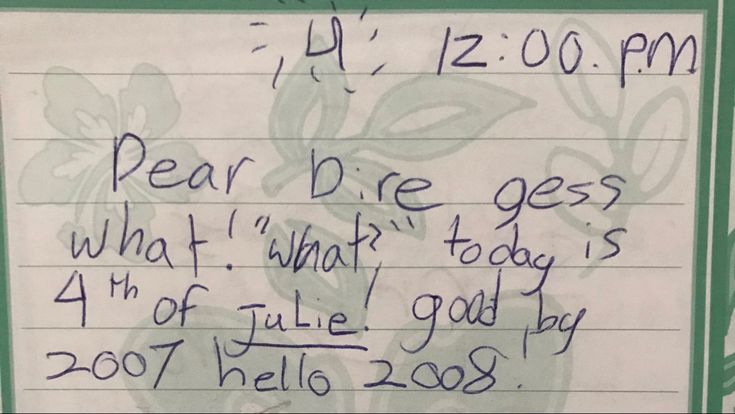 4 12:00. p.m
Dear Dire gess
what! "what?" today is
4th of julie! good by
2007 hello 2008!